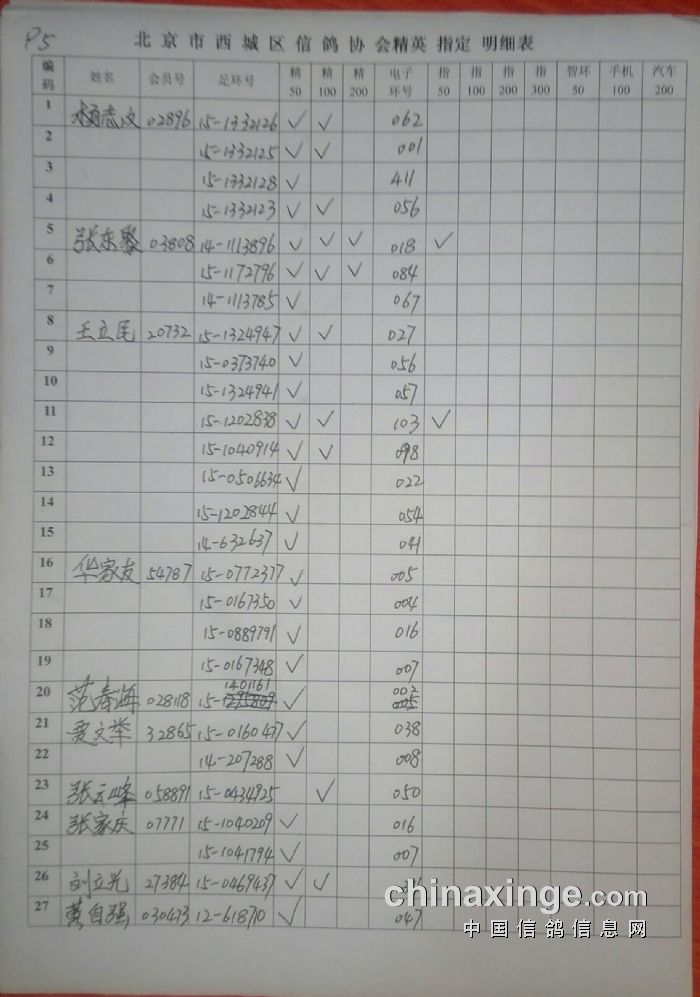 P5
北京市西城区信鸽协会精英 指定 明细表
编码 姓名 会员号 足环号 精50 精100 精200 电子环号 指50 指100 指200 指300 智环50 手机100 汽车200
1 杨志文 02896 15-1332126 ✓ ✓ 062
2 15-1332125 ✓ ✓ 001
3 15-1332128 ✓ 411
4 15-1332123 ✓ ✓ 056
5 张东 03808 14-1113896 ✓ ✓ ✓ 018 ✓
6 15-1172796 ✓ ✓ ✓ 084
7 14-1113785 ✓ 067
8 王立尾 20732 15-1324947 ✓ ✓ 027
9 15-0373740 ✓ 056
10 15-1324941 ✓ 057
11 15-1202838 ✓ ✓ 103 ✓
12 15-1040914 ✓ ✓ 098
13 15-0506634 ✓ 022
14 15-1202844 ✓ 054
15 14-632637 ✓ 041
16 华家友 54787 15-0772377 ✓ 005
17 15-0167350 ✓ 004
18 15-0889791 ✓ 016
19 15-0167348 ✓ 007
20 范春海 028118 15-1401161 ✓ 002
21 贾文举 32865 15-0160477 ✓ 038
22 14-207288 ✓ 008
23 张云峰 058891 15-0434925 ✓ 050
24 张家庆 07771 15-1040209 ✓ 016
25 15-1041794 ✓ 007
26 刘立光 27384 15-0469437 ✓ ✓
27 黄自强 030473 12-618710 ✓ 047
chinaxinge.com
中国信鸽信息网